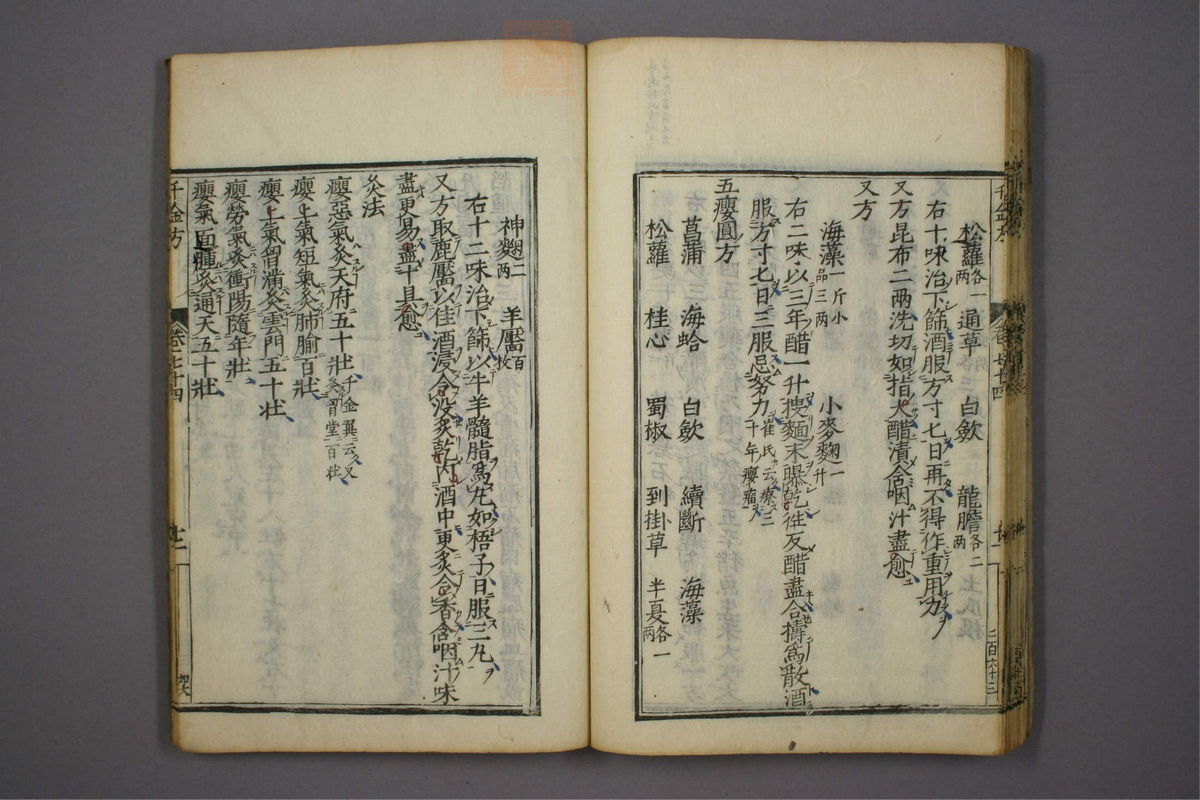 松蘿各一两 通草 白歛 龍膽各二两
右十味治下篩酒服方寸七日再不得作重用力
又方昆布二两洗切如指大醋漬含咽汁盡愈
又方
海藻一斤小品三两 小麥麴一升
右二味以三年醋一升搜麺末曝乾往反醋盡合擣為散酒
服方寸七日三服忌努力崔氏云療三十年癭瘤
五癭圓方
菖蒲 海蛤 白歛 續斷 海藻
松蘿 桂心 蜀椒 到掛草 半夏各一两
神麴二两 羊靨百枚
右十二味治下篩以牛羊髓脂為丸如梧子日服三丸
又方取鹿靨以佳酒浸令没炙乾内酒中更炙令香含咽汁味
盡更易盡十具愈
灸法
癭惡氣灸天府五十壯千金翼云又灸胷堂百壯
癭上氣短氣灸肺腧百壯
癭上氣胷滿灸雲門五十壯
癭勞氣灸衝陽隨年壯
癭氣面腫灸通天五十壯
千金方 卷二七十四 二百六十三
千金方 卷二七十四